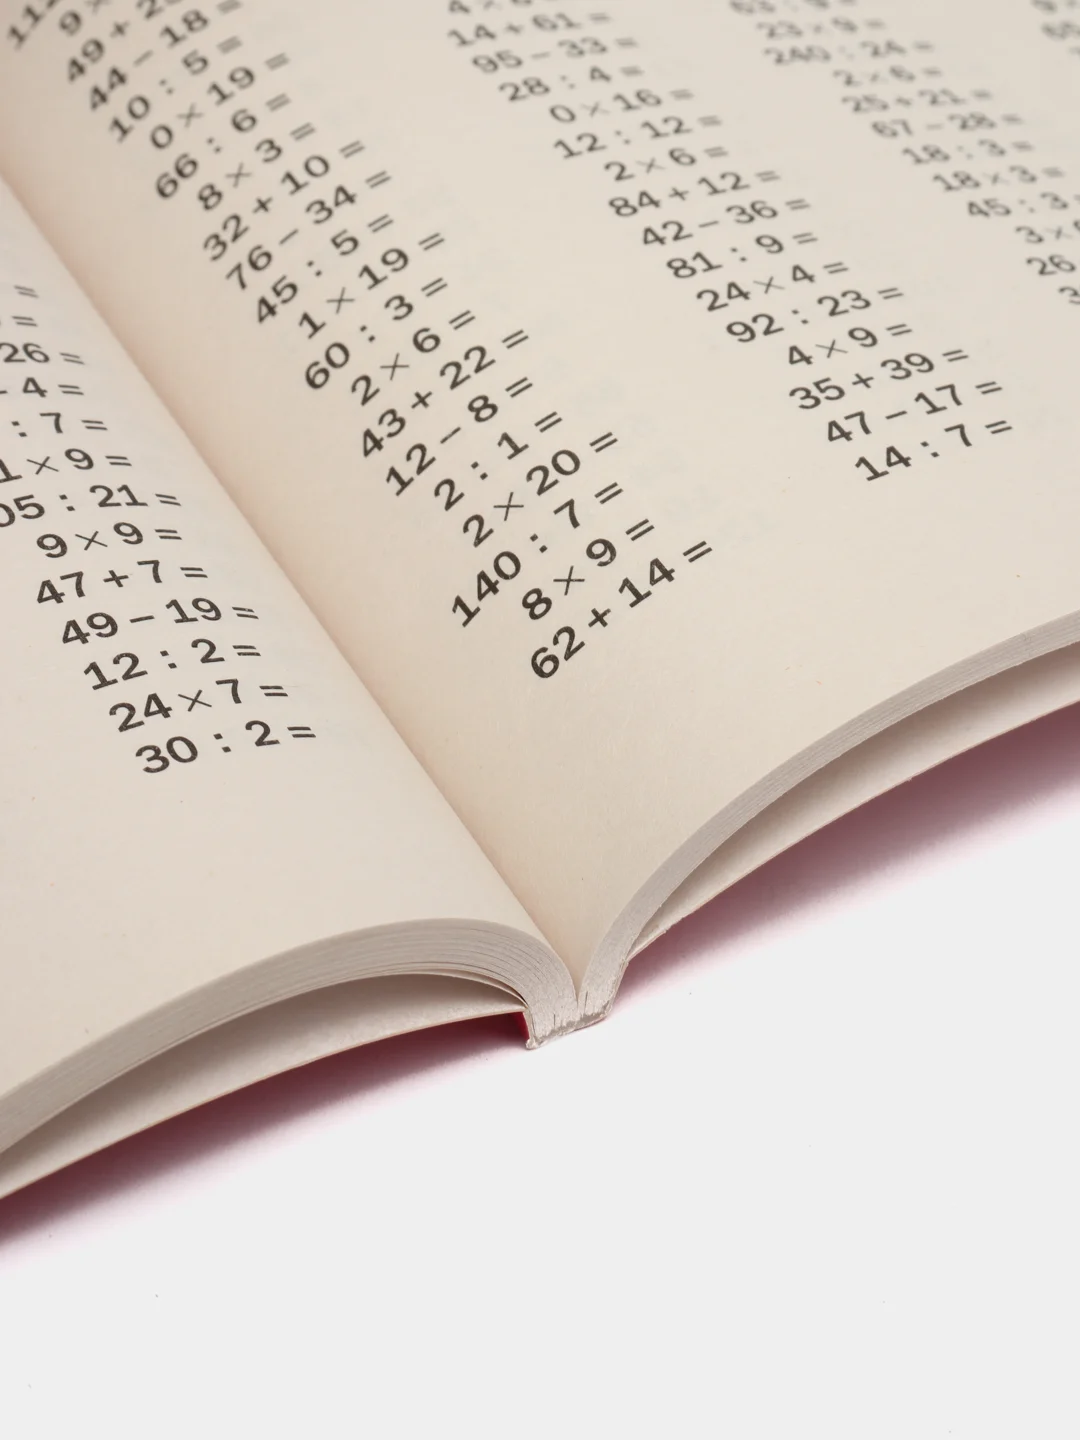 26 =
4 =
: 7 =
1 × 9 =
05 : 21 =
9 × 9 =
47 + 7 =
49 – 19 =
12 : 2 =
24 × 7 =
30 : 2 =
44 – 18 =
10 : 5 =
0 × 19 =
66 : 6 =
8 × 3 =
32 + 10 =
76 – 34 =
45 : 5 =
1 × 19 =
60 : 3 =
2 × 6 =
43 + 22 =
12 – 8 =
2 : 1 =
2 × 20 =
140 : 7 =
8 × 9 =
62 + 14 =
14 + 61 =
95 – 33 =
28 : 4 =
0 × 16 =
12 : 12 =
2 × 6 =
84 + 12 =
42 – 36 =
81 : 9 =
24 × 4 =
92 : 23 =
4 × 9 =
35 + 39 =
47 – 17 =
14 : 7 =
23 × 9 =
240 : 24 =
2 × 6 =
25 + 21 =
67 – 28 =
18 : 3 =
18 × 3 =
45 : 3
3 ×
26